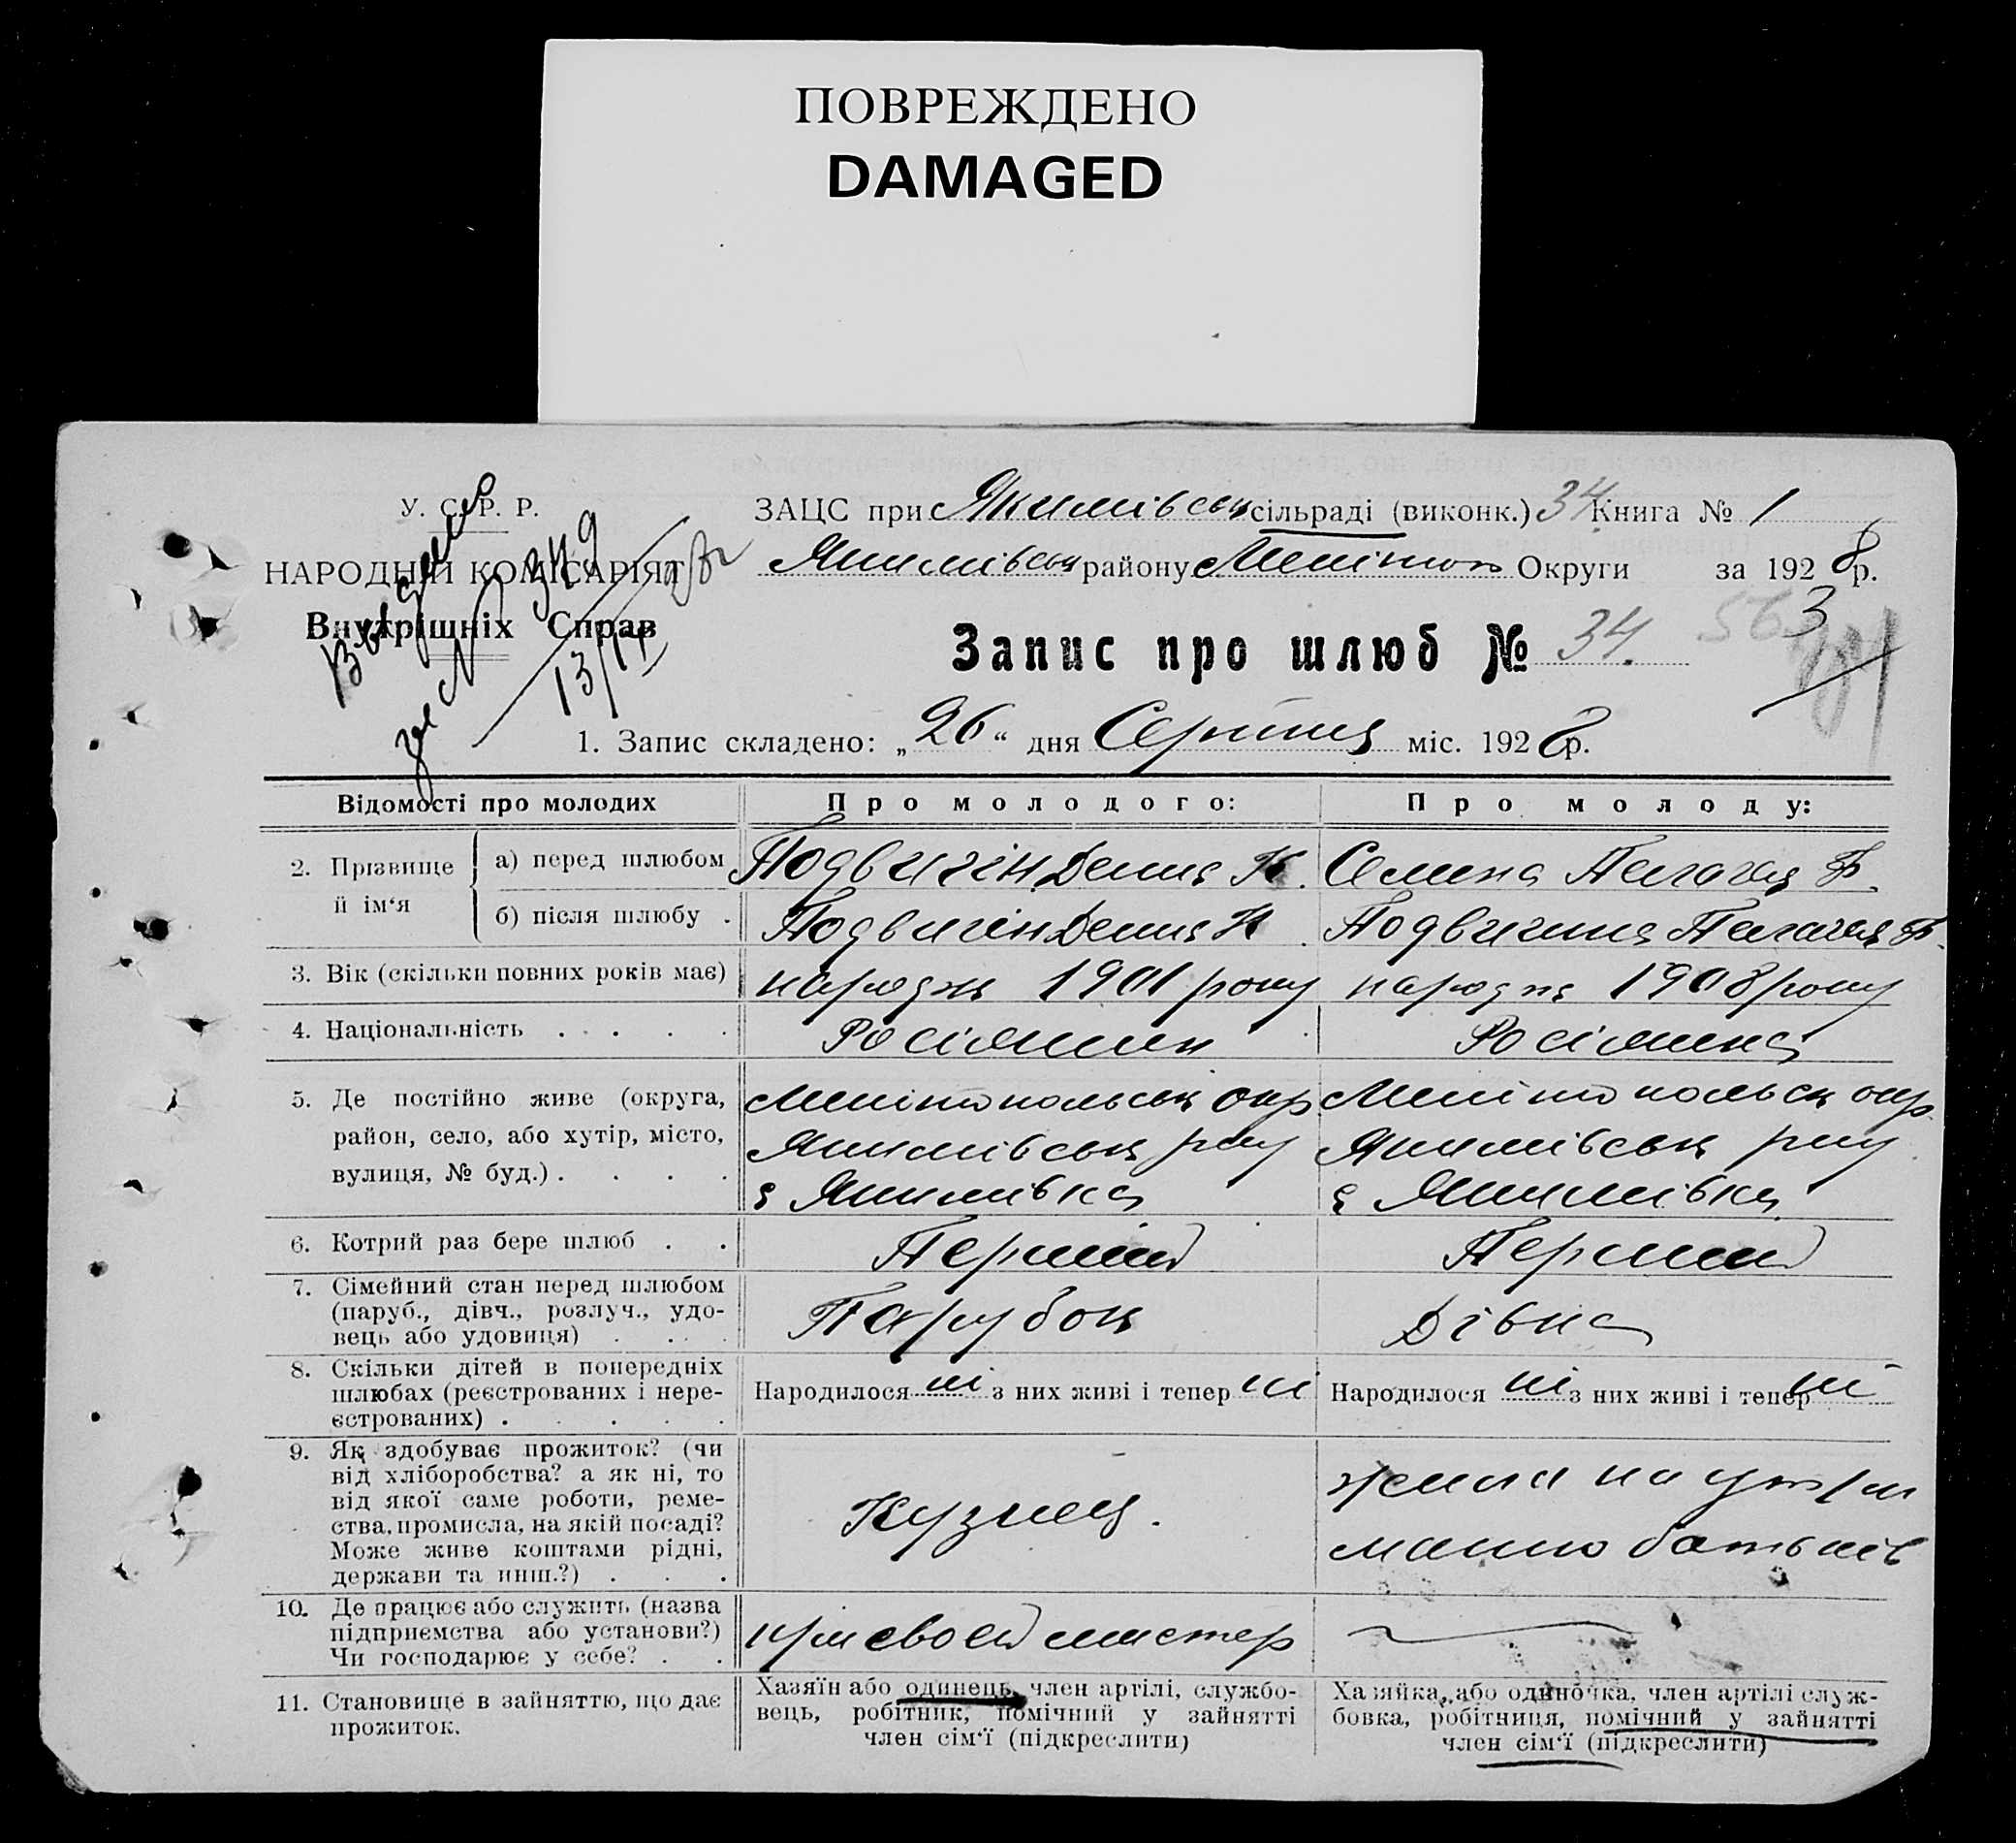 ПОВРЕЖДЕНО
DAMAGED
У. С. Р. Р.
НАРОДНІЙ КОМІСАРІЯТ
Внутрішніх Справ
13/IX
ЗАЦС при Якимівськ сільраді (виконк.) 34. Книга № 1
Якимівськ району Меліто Округи за 1928 р.
Запис про шлюб № 34.
3
1. Запис складено: „26“ дня Серпня міс. 1928 р.
Відомості про молодих Про молодого: Про молоду:
2. Прізвище й ім‘я
а) перед шлюбом Подвигін Денис К. Селина Пелагея Ф.
б) після шлюбу . Подвигін Денис К. Подвигина Пелагея Ф.
3. Вік (скільки повних років має) народж 1901 року народж 1908 року
4. Національність . . . . Росіянин Росіянка
5. Де постійно живе (округа, район, село, або хутір, місто, вулиця, № буд.) . . . .
Мелітопольськ окр Мелітопольськ окр.
Якимівськ рну Якимівськ рну
с Якимівка с Якимівка
6. Котрий раз бере шлюб . . Перший Перший
7. Сімейний стан перед шлюбом
(паруб., дівч., розлуч., удо-
вець або удовиця) . . . . Парубок Дівка
8. Скільки дітей в попередніх
шлюбах (реєстрованих і нере-
єстрованих) . . . . .
Народилося ні з них живі і тепер ні Народилося ні з них живі і тепер ні
9. Як здобуває прожиток? (чи
від хліборобства? а як ні, то
від якої саме роботи, реме-
ства, промисла, на якій посаді?
Може живе коштами рідні,
держави та инш.?) . . .
Кузнец. жила на утри
манню батьків
10. Де працює або служить (назва
підприємства або установи?)
Чи господарює у себе? . .
при своей мастер
11. Становище в зайняттю, що дає
прожиток.
Хазяїн або одинець, член артілі, службо-
вець, робітник, помічний у зайнятті
член сім‘ї (підкреслити)
Хазяйка, або одиночка, член артілі служ-
бовка, робітниця, помічний у зайнятті
член сім‘ї (підкреслити)